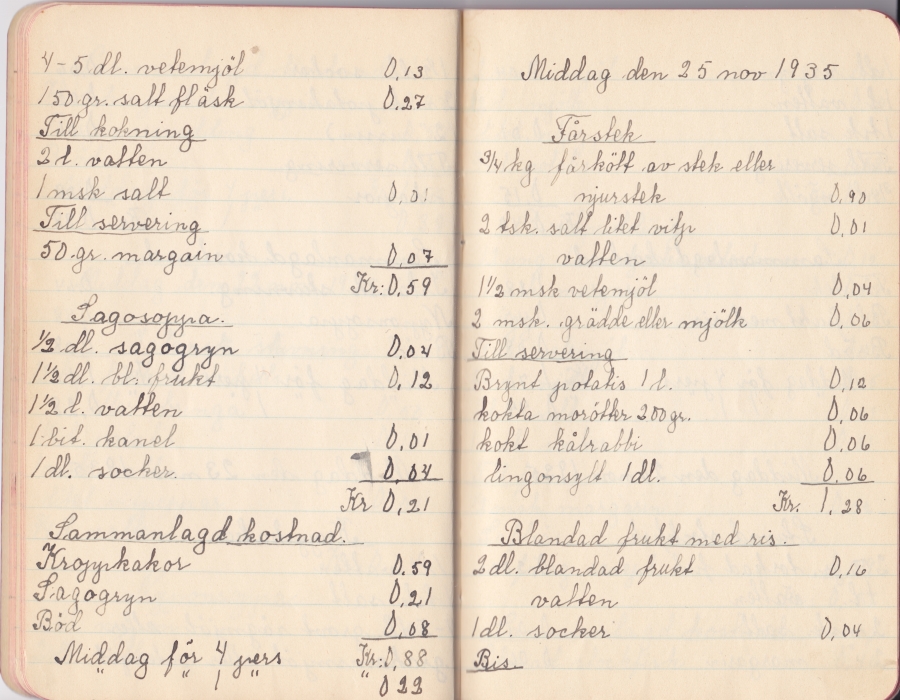 4-5 dl. vetemjöl 0,13
150 gr. salt fläsk 0,27
Till kokning
2 l. vatten
1 msk salt 0,01
Till servering
50 gr. margain 0,07
Kr: 0,59
Sagosoppa.
1/2 dl. sagogryn 0,04
1 1/2 dl. bl. frukt 0,12
1 1/2 l. vatten
1 bit. kanel 0,01
1 dl. socker. 0,04
Kr 0,21
Sammanlagd kostnad.
Kroppkakor 0.59
Sagogryn 0,21
Böd 0,08
Middag för 4 pers Kr: 0,88
" " 1 " " 0 22
Middag den 25 nov 1935
Fårstek
3/4 kg fårkött av stek eller
njurstek 0,90
2 tsk. salt litet vitp 0,01
vatten
1 1/2 msk vetemjöl 0,04
2 msk. grädde eller mjölk 0,06
Till servering
Brynt potatis 1 l. 0,10
kokta morötter 200 gr. 0,06
kokt kålrabbi 0,06
lingonsylt 1 dl. 0,06
Kr: 1,28
Blandad frukt med ris.
2 dl. blandad frukt 0,16
vatten
1 dl. socker 0,04
Ris.